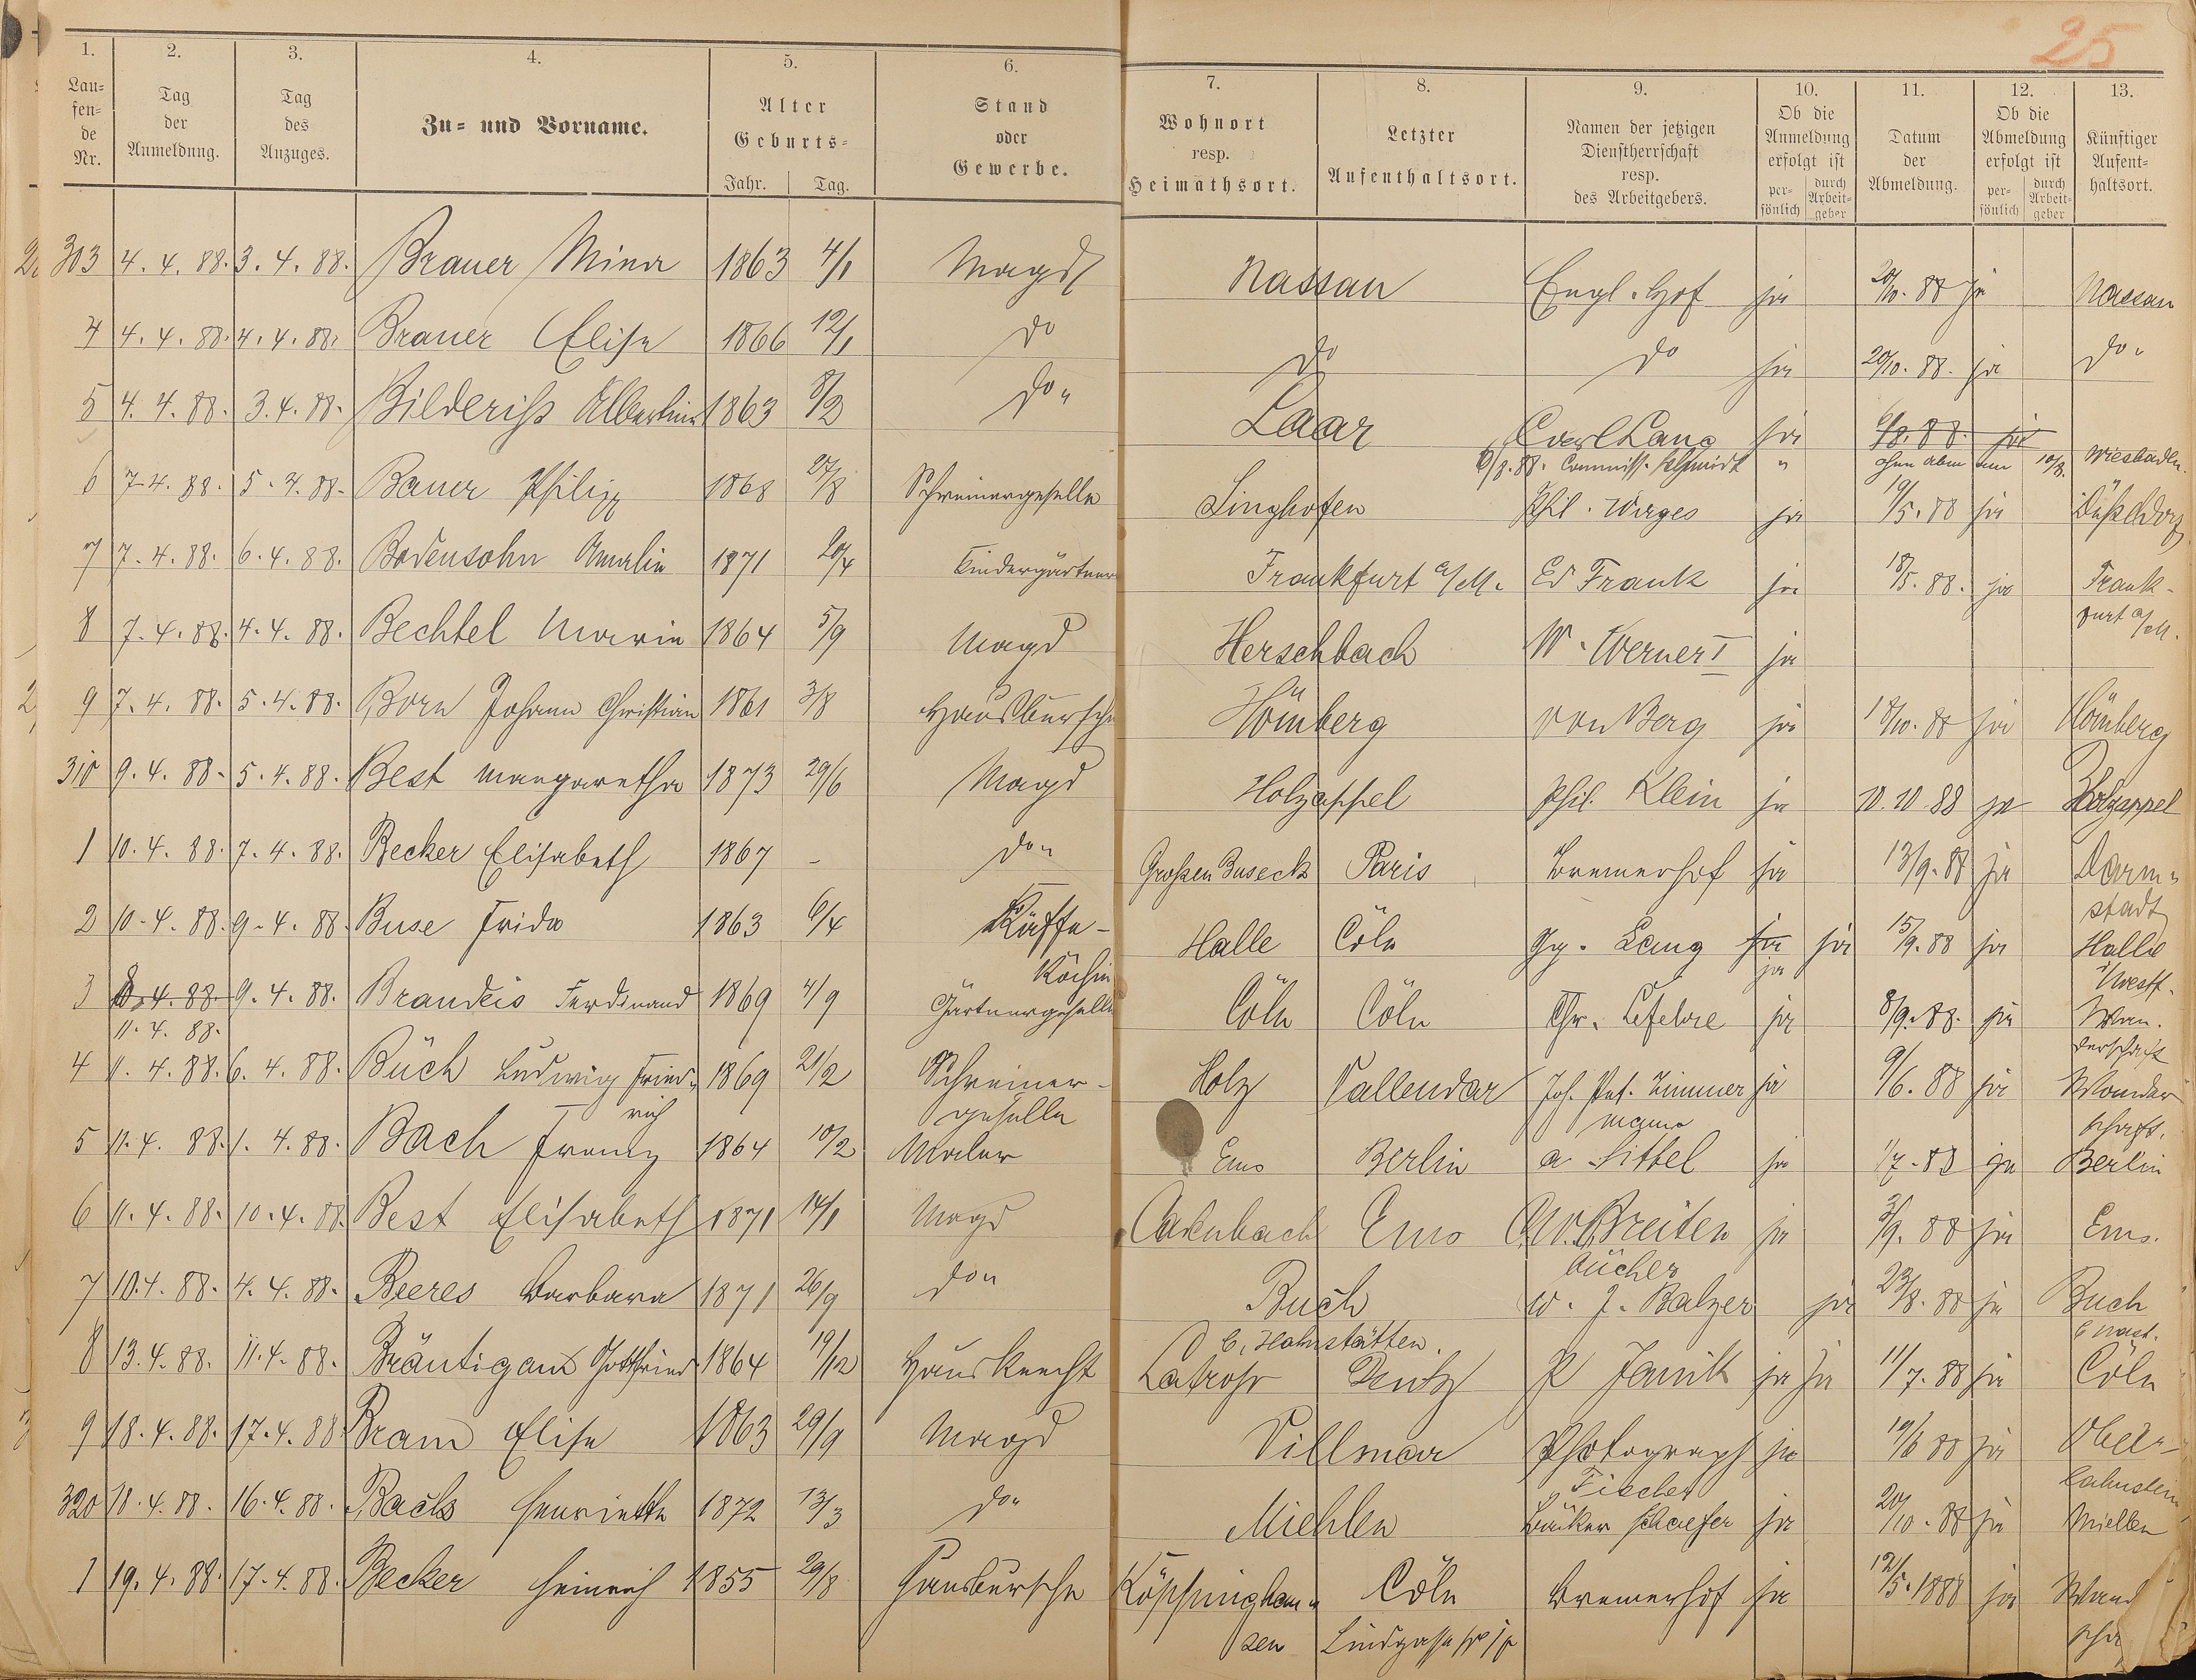 25
1. 2. 3. 4. 5. 6. 7. 8. 9. 10. 11. 12. 13.
Lau-
fen-
de
Nr.
Tag
der
Anmeldung.
Tag
des
Anzuges.
Zu- und Vorname.
Alter
Geburts-
Jahr. Tag.
Stand
oder
Gewerbe.
Wohnort
resp.
Heimathsort.
Letzter
Aufenthaltsort.
Namen der jetzigen
Dienstherrschaft
resp.
des Arbeitgebers.
Ob die
Anmeldung
erfolgt ist
per-
sönlich
durch
Arbeit-
geber
Datum
der
Abmeldung.
Ob die
Abmeldung
erfolgt ist
per-
sönlich
durch
Arbeit-
geber
Künftiger
Aufent-
haltsort.
303 4. 4. 88. 3. 4. 88. Brauer Mina 1863 4/1 Magd Nassau Engl. Hof ja 20/10. 88 ja Nassau
4 4. 4. 88. 4. 4. 88. Brauer Elise 1866 12/1 do do do ja 20/10. 88. ja do
5 4. 4. 88. 3. 4. 88. Bilderiß Albertine 1863 8/2 do Laar Carl Lang ja 6/8. 88. ja
6/8. 88. Commiss. Schmidt " 10/8. Wiesbaden.
6 7 4. 88. 5. 4. 88. Bauer Philipp 1868 27/8 Schreinergeselle Singhofen Phil. Wirges ja 19/5. 88 ja Düsseldorf
7 7. 4. 88. 6. 4. 88. Bodensohn Amalie 1871 20/4 Kindergärtner Frankfurt a/M. Ed Frank ja 18/5. 88. ja Frank-
furt a/M.
8 7. 4. 88. 4. 4. 88. Bechtel Marie 1864 5/9 Magd Herschbach W. Werner I ja
9 7. 4. 88. 5. 4. 88. Born Johann Christian 1861 3/8 Hausbursche Hömberg von Berg ja 18/10. 88 ja Hömberg
310 9. 4. 88. 5. 4. 88. Best Margaretha 1873 29/6 Magd Holzappel Phil. Klein ja 10. 10 88 ja Holzappel
1 10. 4. 88. 7. 4. 88. Becker Elisabeth 1867 - do Großen Buseck Paris Bremerhof ja 13/9. 88 ja Darm-
stadt
2 10. 4. 88. 9. 4. 88. Buse Frida 1863 6/4 Kaffe-
Köchin Halle Cöln Gg. Lang ja ja 15/9. 88 ja Halle
ja i/Westf.
3 10. 4. 88. 9. 4. 88. Brandeis Ferdinand 1869 4/9 Gärtnergeselle Cöln Cöln Chr. Lefebre ja 8/9. 88. ja Wan-
11. 4. 88. derschaft
4 11. 4. 88. 6. 4. 88. Buch Ludwig Fried- 1869 21/2 Schreiner- Holz Vallendar Joh. Pet. Zimmer ja 9/6. 88 ja Wander
rich geselle mann schaft.
5 11. 4. 88. 1. 4. 88. Bach Franz 1864 10/2 Maler Ems Berlin a Sittel ja 1/7. 88 ja Berlin
6 11. 4. 88. 10. 4. 88. Best Elisabeth 1871 14/1 Magd Ems Breiten ja 3/9. 88 ja Ems.
bücher
7 10. 4. 88. 4. 4. 88. Beeres Barbara 1871 26/9 do Buch W. J. Balzer ja 23/8. 88 ja Buch
b. Hahnstätten.
8 13. 4. 88. 11. 4. 88. Bräutigam Gottfried 1864 19/12 Hausknecht Deutz ja ja 11/7. 88 ja Cöln
9 18. 4. 88. 17. 4. 88 Bram Elise 1863 29/9 Magd Villmar Photograph ja 19/6 88 ja Ober-
Fischer lahnstein
320 18. 4. 88. 16. 4. 88. Bach Henriette 1872 13/3 do Miehlen Bäcker Schaefer ja 20/10. 88 ja Miellen
1 19. 4. 88. 17. 4. 88. Becker Heinrich 1855 29/8 Hausbursche Cöln Bremerhof ja 12/5. 1888 ja Wand
sen Lindgasse scha